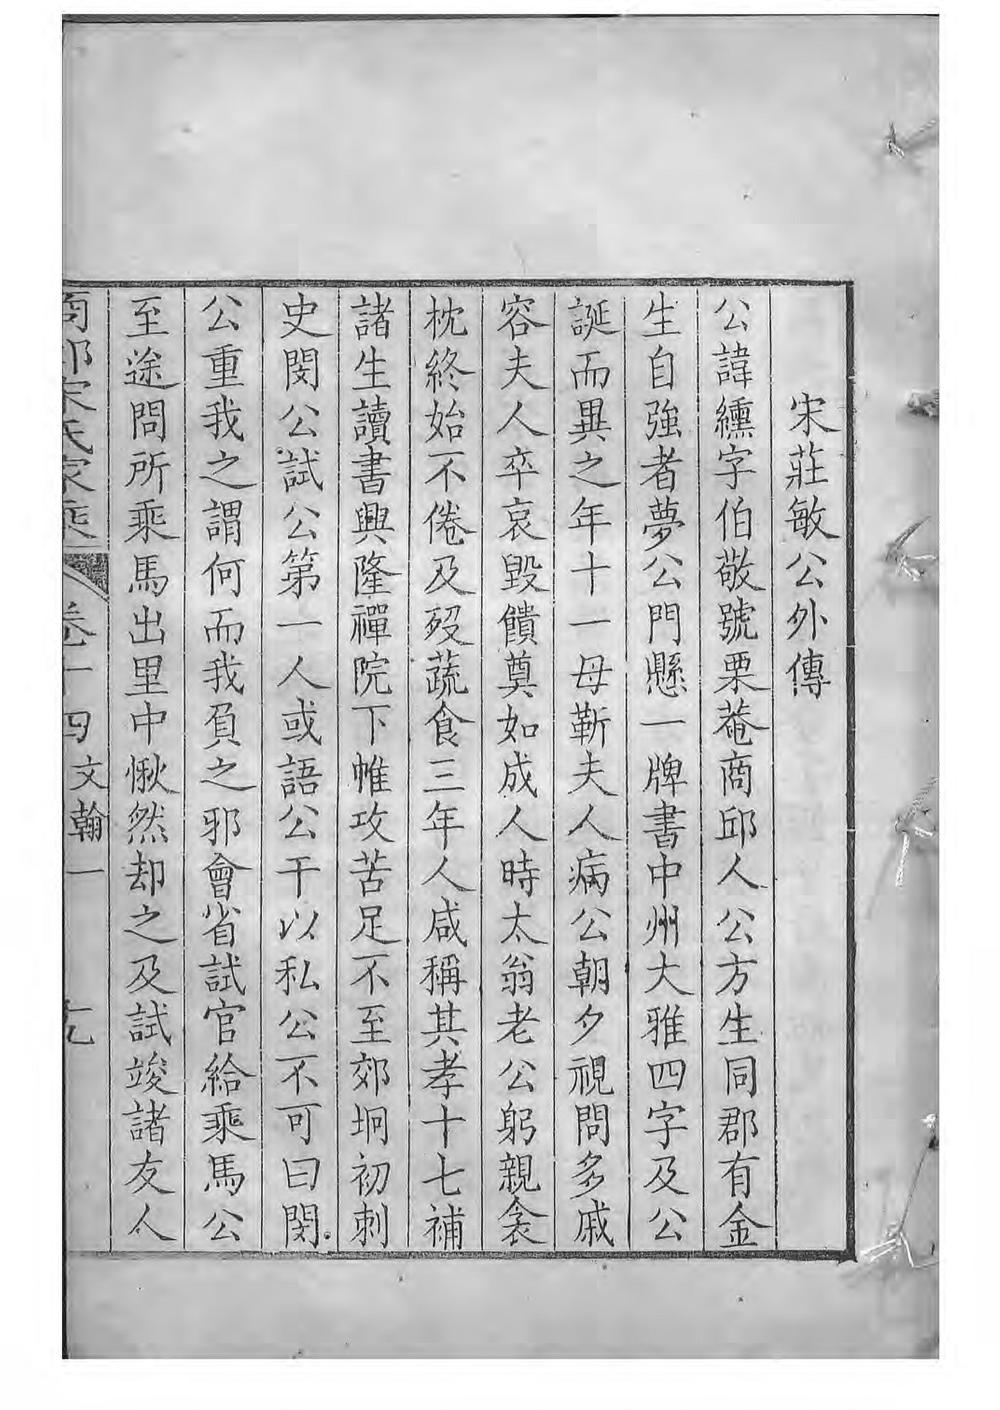 宋莊敏公外傳
公諱纁字伯敬號栗菴商邱人公方生同郡有金
生自強者夢公門懸一牌書中州大雅四字及公
誕而異之年十一母靳夫人病公朝夕視問多戚
容夫人卒哀毀饋奠如成人時太翁老公躬親衾
枕終始不倦及歿蔬食三年人咸稱其孝十七補
諸生讀書興隆禪院下帷攻苦足不至郊坰初刺
史閔公試公第一人或語公干以私公不可曰閔
公重我之謂何而我負之邪會省試官給乘馬公
至途問所乘馬出里中愀然却之及試竣諸友人
商邱宋氏家乘 卷十四 文翰一 十九